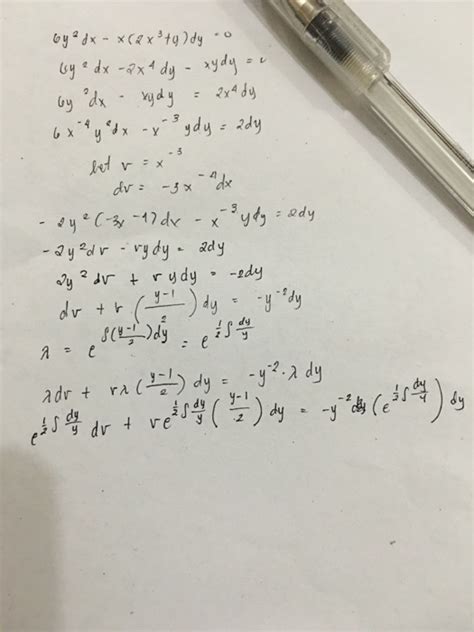 6y²dx - x(2x³+y)dy = 0
6y²dx - 2x⁴dy - xydy = 0
6y²dx - xydy = 2x⁴dy
6x⁻⁴y²dx - x⁻³ydy = 2dy
let v = x⁻³
dv = -3x⁻⁴dx
-2y²(-3x⁻⁴)dx - x⁻³ydy = 2dy
-2y²dv - vydy = 2dy
2y²dv + vydy = -2dy
dv + v(y⁻¹/2)dy = -y⁻²dy
λ = e^∫(y⁻¹/2)dy = e^½∫dy/y
λdv + vλ(y⁻¹/2)dy = -y⁻²·λdy
e^½∫dy/y dv + ve^½∫dy/y (y⁻¹/2)dy = -y⁻² (e^½∫dy/y)dy